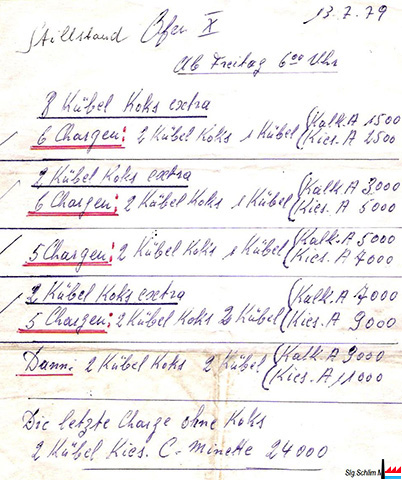 13.7.79
Stillstand Ofen X
Ab Freitag 6 00 Uhr
8 Kübel Koks extra
6 Chargen: 2 Kübel Koks 1 Kübel (Kalk.A 1500
Kies.A 2500
2 Kübel Koks extra
6 Chargen: 2 Kübel Koks 1 Kübel (Kalk.A 3000
Kies.A 5000
5 Chargen: 2 Kübel Koks 1 Kübel (Kalk.A 5000
Kies.A 7000
2 Kübel Koks extra
5 Chargen: 2 Kübel Koks 2 Kübel (Kalk.A 7000
Kies.A 9000
Dann: 2 Kübel Koks 2 Kübel (Kalk A 9000
Kies.A 11000
Die letzte Charge ohne Koks
2 Kübel Kies. C- Minette 24000
Slg Schlim